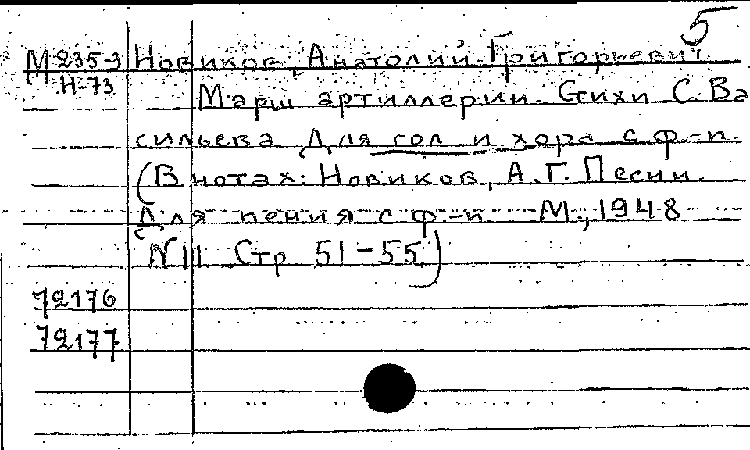 5
М 235-3 Новиков, Анатолий Григорьевич
Н-73
Марш артиллерии. Стихи С. Ва
сильева Для гол и хора с ф-п.
(В нотах: Новиков, А. Г. Песни.
Для пения с ф-п. М., 1948
N 11 Стр 51-55)
72176
72177